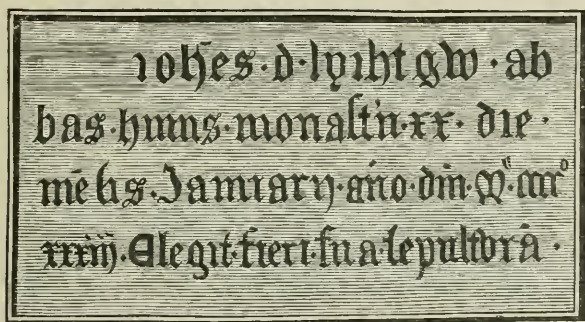 iohes·d·lyihtgw·ab
bas·huius·monastii·xx·die·
mēsis·Januarij·ano·dni·Mº·ccccº
xxxiij·Elegit·fieri·sua·sepultura·